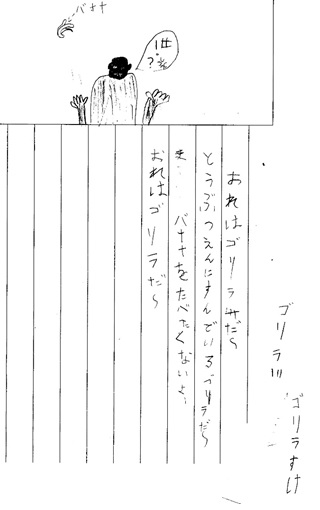 バナナ
ゴリラ!!!
ゴリラすけ
おれはゴリラだ〜
とうぶつえんにすんでいるゴリラだ〜
ま…
バナナをたべたくないよぅ
おれはゴリラだ〜